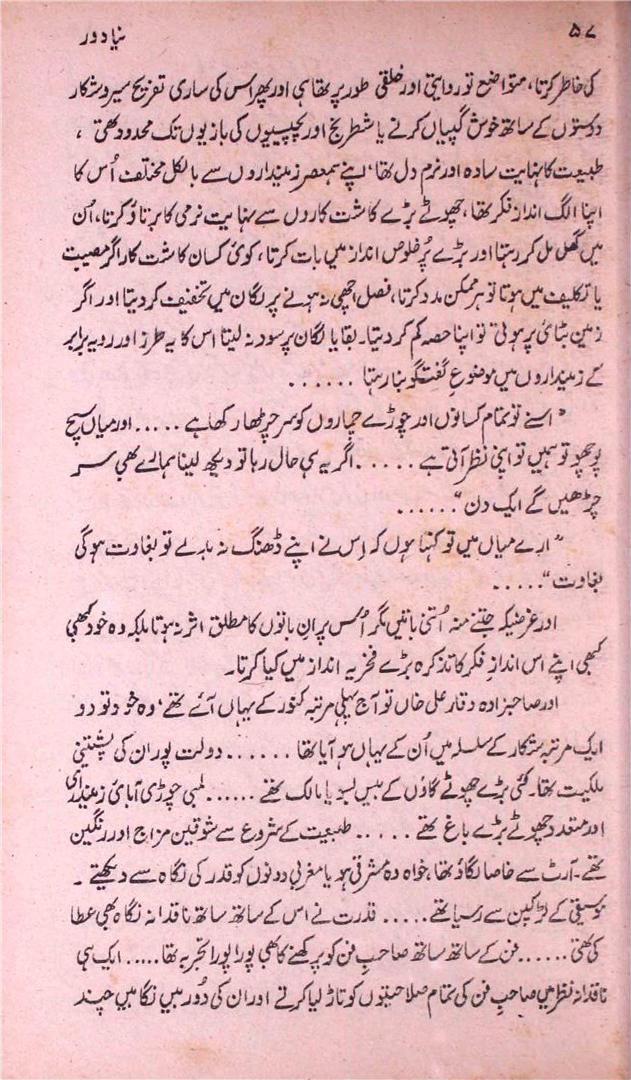 ۵۷
نیا دور
کی خاطر کرتا، متواضع تو روایتی اور خلقی طور پر تھا ہی اور پھر اس کی ساری تفریح سیر و شکار
دوستوں کے ساتھ خوش گپیاں کرنے یا شطرنج اور پچیسیوں کی بازیوں تک محدود تھی،
طبیعت کا نہایت سادہ اور نرم دل تھا، اپنے ہمعصر زمینداروں سے بالکل مختلف اُس کا
اپنا الگ اندازِ فکر تھا، چھوٹے بڑے کاشت کاروں سے نہایت نرمی کا برتاؤ کرتا، اُن
میں گھل مل کر رہتا اور بڑے پُر خلوص انداز میں بات کرتا، کوئی کسان کاشت کار اگر مصیبت
یا تکلیف میں ہوتا تو ہر ممکن مدد کرتا، فصل اچھی نہ ہونے پر لگان میں تخفیف کر دیتا اور اگر
زمین بٹائی پر ہوتی تو اپنا حصہ کم کر دیتا۔ بقایا لگان پر سود نہ لیتا اس کا یہ طرز اور رویہ برابر
کے زمینداروں میں موضوعِ گفتگو بنا رہتا ......
"اسنے تو تمام کسانوں اور چوڑے چماروں کو سر چڑھا رکھا ہے ..... اور میاں سچ
پوچھو تو ہمیں تو اپنی نظر آتی ہے ..... اگر یہی حال رہا تو دیکھ لینا ہمارے بھی سر
چڑھیں گے ایک دن" ......
"ارے میاں میں تو کہتا ہوں کہ اِس نے اپنے ڈھنگ نہ بدلے تو بغاوت ہوگی
بغاوت" .....
اور غرضیکہ جتنے منہ اُتنی باتیں مگر اُس پر ان باتوں کا مطلق اثر نہ ہوتا بلکہ وہ خود بھی
کبھی اپنے اس اندازِ فکر کا تذکرہ بڑے فخریہ انداز میں کیا کرتا۔
اور صاحبزادہ وقار علی خاں تو آج پہلی مرتبہ کنور کے یہاں آئے تھے، وہ خود تو دو
ایک مرتبہ شکار کے سلسلہ میں اُن کے یہاں ہو آیا تھا ...... دولت پور ان کی پشتینی
ملکیت تھا۔ کئی بڑے چھوٹے گاؤں کے بیس بسویا مالک تھے ...... لمبی چوڑی آبائی زمینداری
اور متعدد چھوٹے بڑے باغ تھے ..... طبیعت کے شروع سے شوقین مزاج اور رنگین
تھے۔ آرٹ سے خاصا لگاؤ تھا، خواہ وہ مشرقی ہو یا مغربی دونوں کو قدر کی نگاہ سے دیکھتے۔
موسیقی کے لڑکپن سے رسیا تھے ..... قدرت نے اس کے ساتھ ساتھ ناقدانہ نگاہ بھی عطا
کی تھی ...... فن کے ساتھ ساتھ صاحبِ فن کو پرکھنے کا بھی پورا پورا تجربہ تھا ..... ایک ہی
ناقدانہ نظر میں صاحبِ فن کی تمام صلاحیتوں کو تاڑ لیا کرتے اور ان کی دُور بیں نگاہیں چند